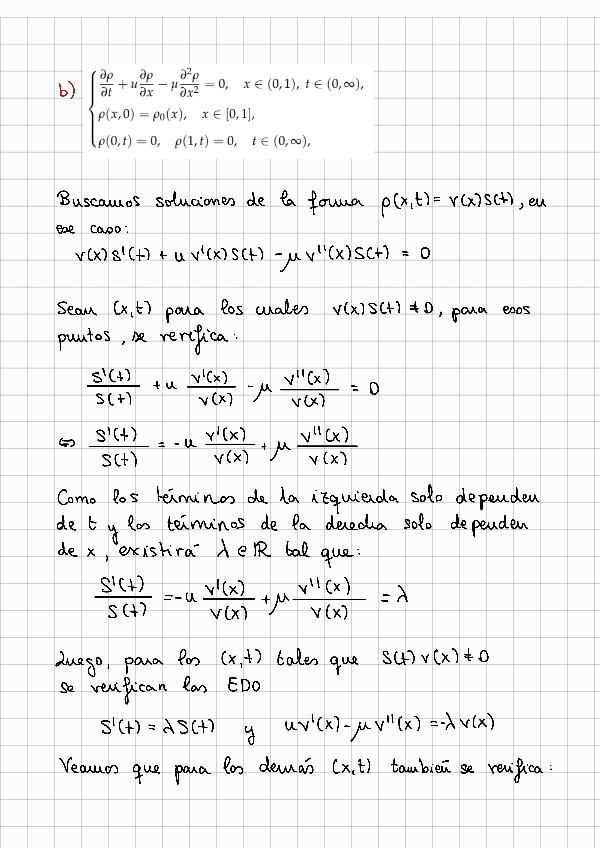 b) ∂ρ/∂t + u ∂ρ/∂x − μ ∂²ρ/∂x² = 0, x ∈ (0,1), t ∈ (0,∞),
ρ(x,0) = ρ₀(x), x ∈ [0,1],
ρ(0,t) = 0, ρ(1,t) = 0, t ∈ (0,∞),
Buscamos soluciones de la forma ρ(x,t) = v(x)S(t), en
ese caso:
v(x)S'(t) + u v'(x)S(t) − μ v''(x)S(t) = 0
Sean (x,t) para los cuales v(x)S(t) ≠ 0, para esos
puntos, se verifica:
S'(t)/S(t) + u v'(x)/v(x) − μ v''(x)/v(x) = 0
⇔ S'(t)/S(t) = −u v'(x)/v(x) + μ v''(x)/v(x)
Como los términos de la izquierda solo dependen
de t y los términos de la derecha solo dependen
de x, existirá λ ∈ ℝ tal que:
S'(t)/S(t) = −u v'(x)/v(x) + μ v''(x)/v(x) = λ
Luego, para los (x,t) tales que S(t)v(x) ≠ 0
se verifican las EDO
S'(t) = λS(t) y uv'(x) − μv''(x) = −λv(x)
Veamos que para los demás (x,t) también se verifica: